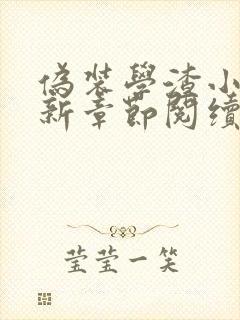 偽装學渣小
新章節閱讀
莹莹一笑